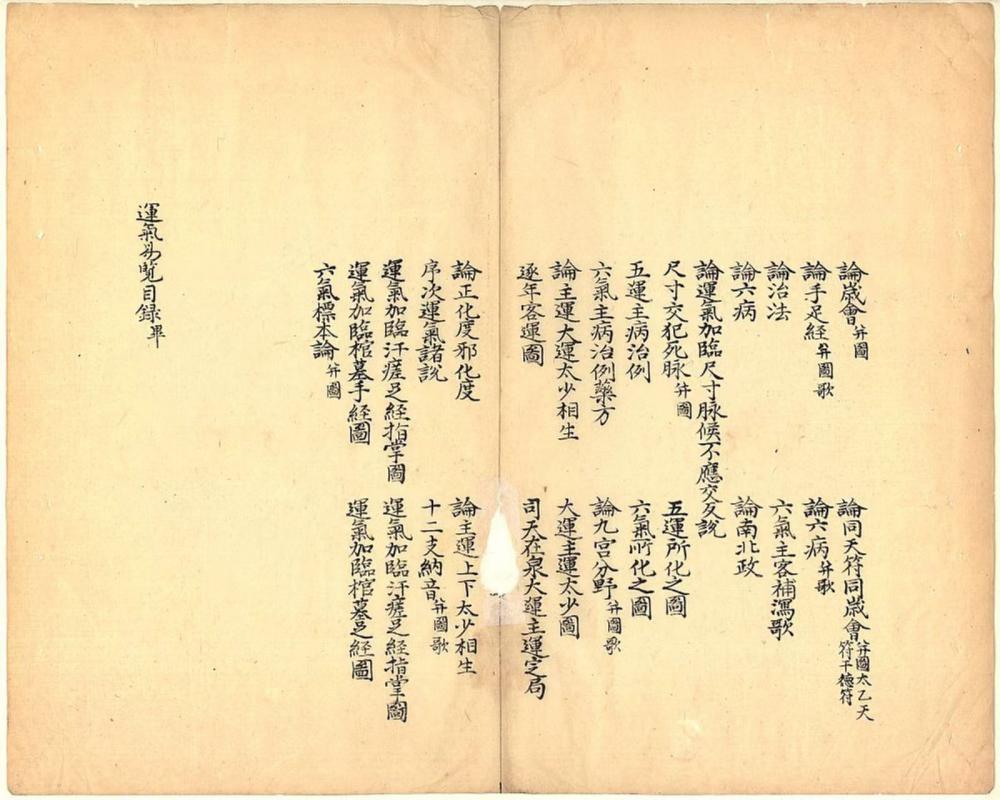 論歲會 并圖
論同天符同歲會 并圖太乙天符干德符
論手足經 并圖歌
論六病 并歌
論治法
六氣主客補瀉歌
論六病
論南北政
論運氣加臨尺寸脉候不應交反說
尺寸交犯死脉 并圖
五運所化之圖
五運主病治例
六氣所化之圖
六氣主病治例藥方
論九宮分野 并圖歌
論主運大運太少相生
大運主運太少圖
逐年客運圖
司天在泉大運主運定局
論正化度邪化度
論主運上下太少相生
序次運氣諸說
十二支納音 并圖歌
運氣加臨汗瘥足經指掌圖
運氣加臨汗瘥足經指掌圖
運氣加臨棺墓手經圖
運氣加臨棺墓足經圖
六氣標本論 并圖
運氣易覽目録畢